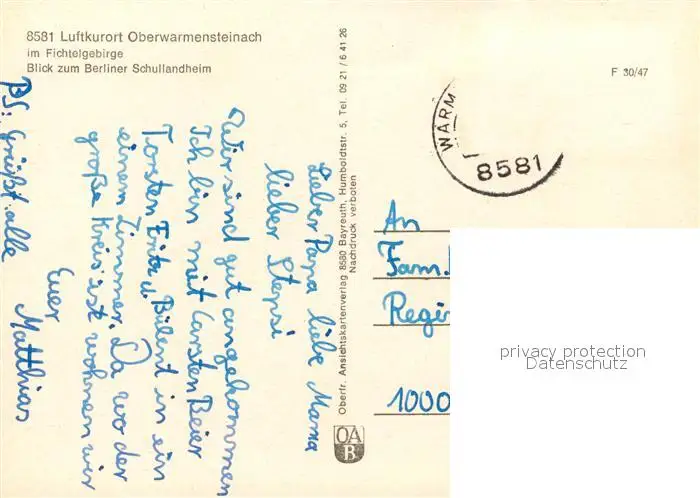 8581 Luftkurort Oberwarmensteinach
im Fichtelgebirge
Blick zum Berliner Schullandheim
Lieber Papa liebe Mama
lieber Stepsi
Wir sind gut angekommen
Ich bin mit Carsten Beier
Torsten Fritz u. Bülent in ein
einem Zimmer. Da wo der
große Kreis ist wohnen wir
Euer
Matthias
PS: Grüßt alle
Oberfr. Ansichtskartenverlag 8580 Bayreuth, Humboldtstr. 5, Tel. 09 21 / 6 41 26
Nachdruck verboten
OA
B
F 30/47
WARM
8581
An
Fam.
Regi
1000
privacy protection
Datenschutz